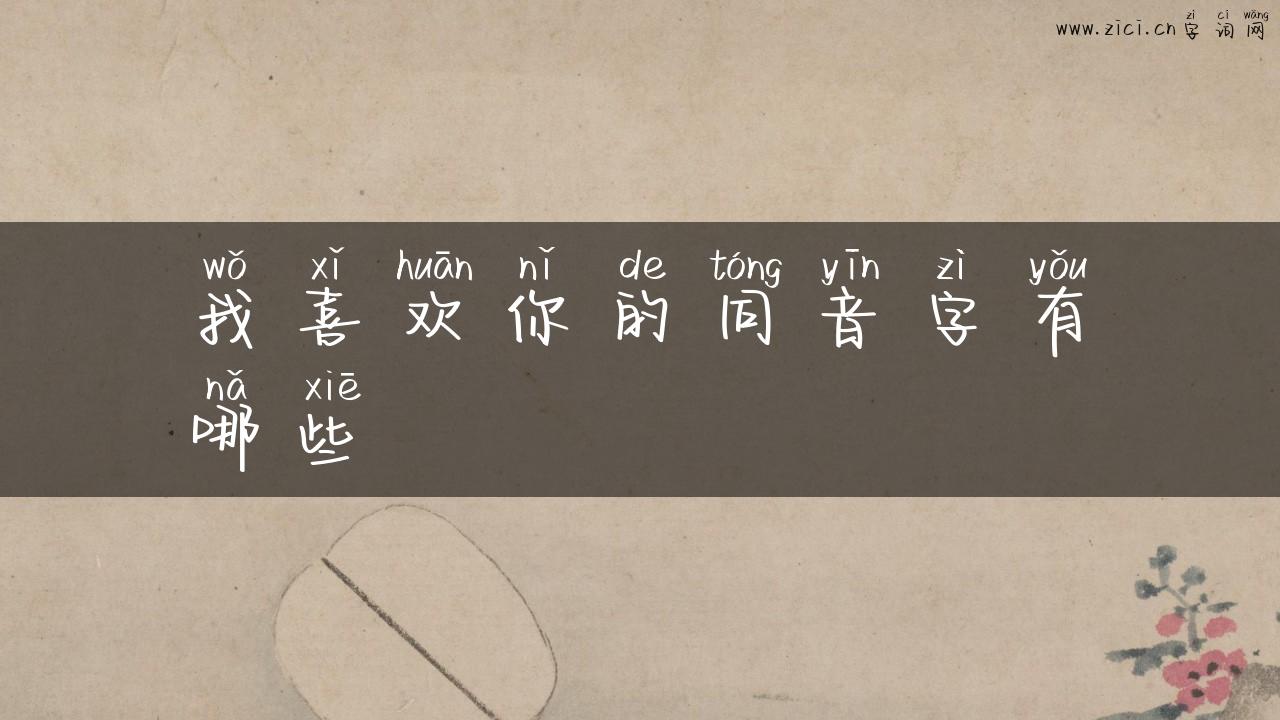 zì cí wǎng
www.zici.cn字词网
wǒ xǐ huān nǐ de tóng yīn zì yǒu
我喜欢你的同音字有
nǎ xiē
哪些